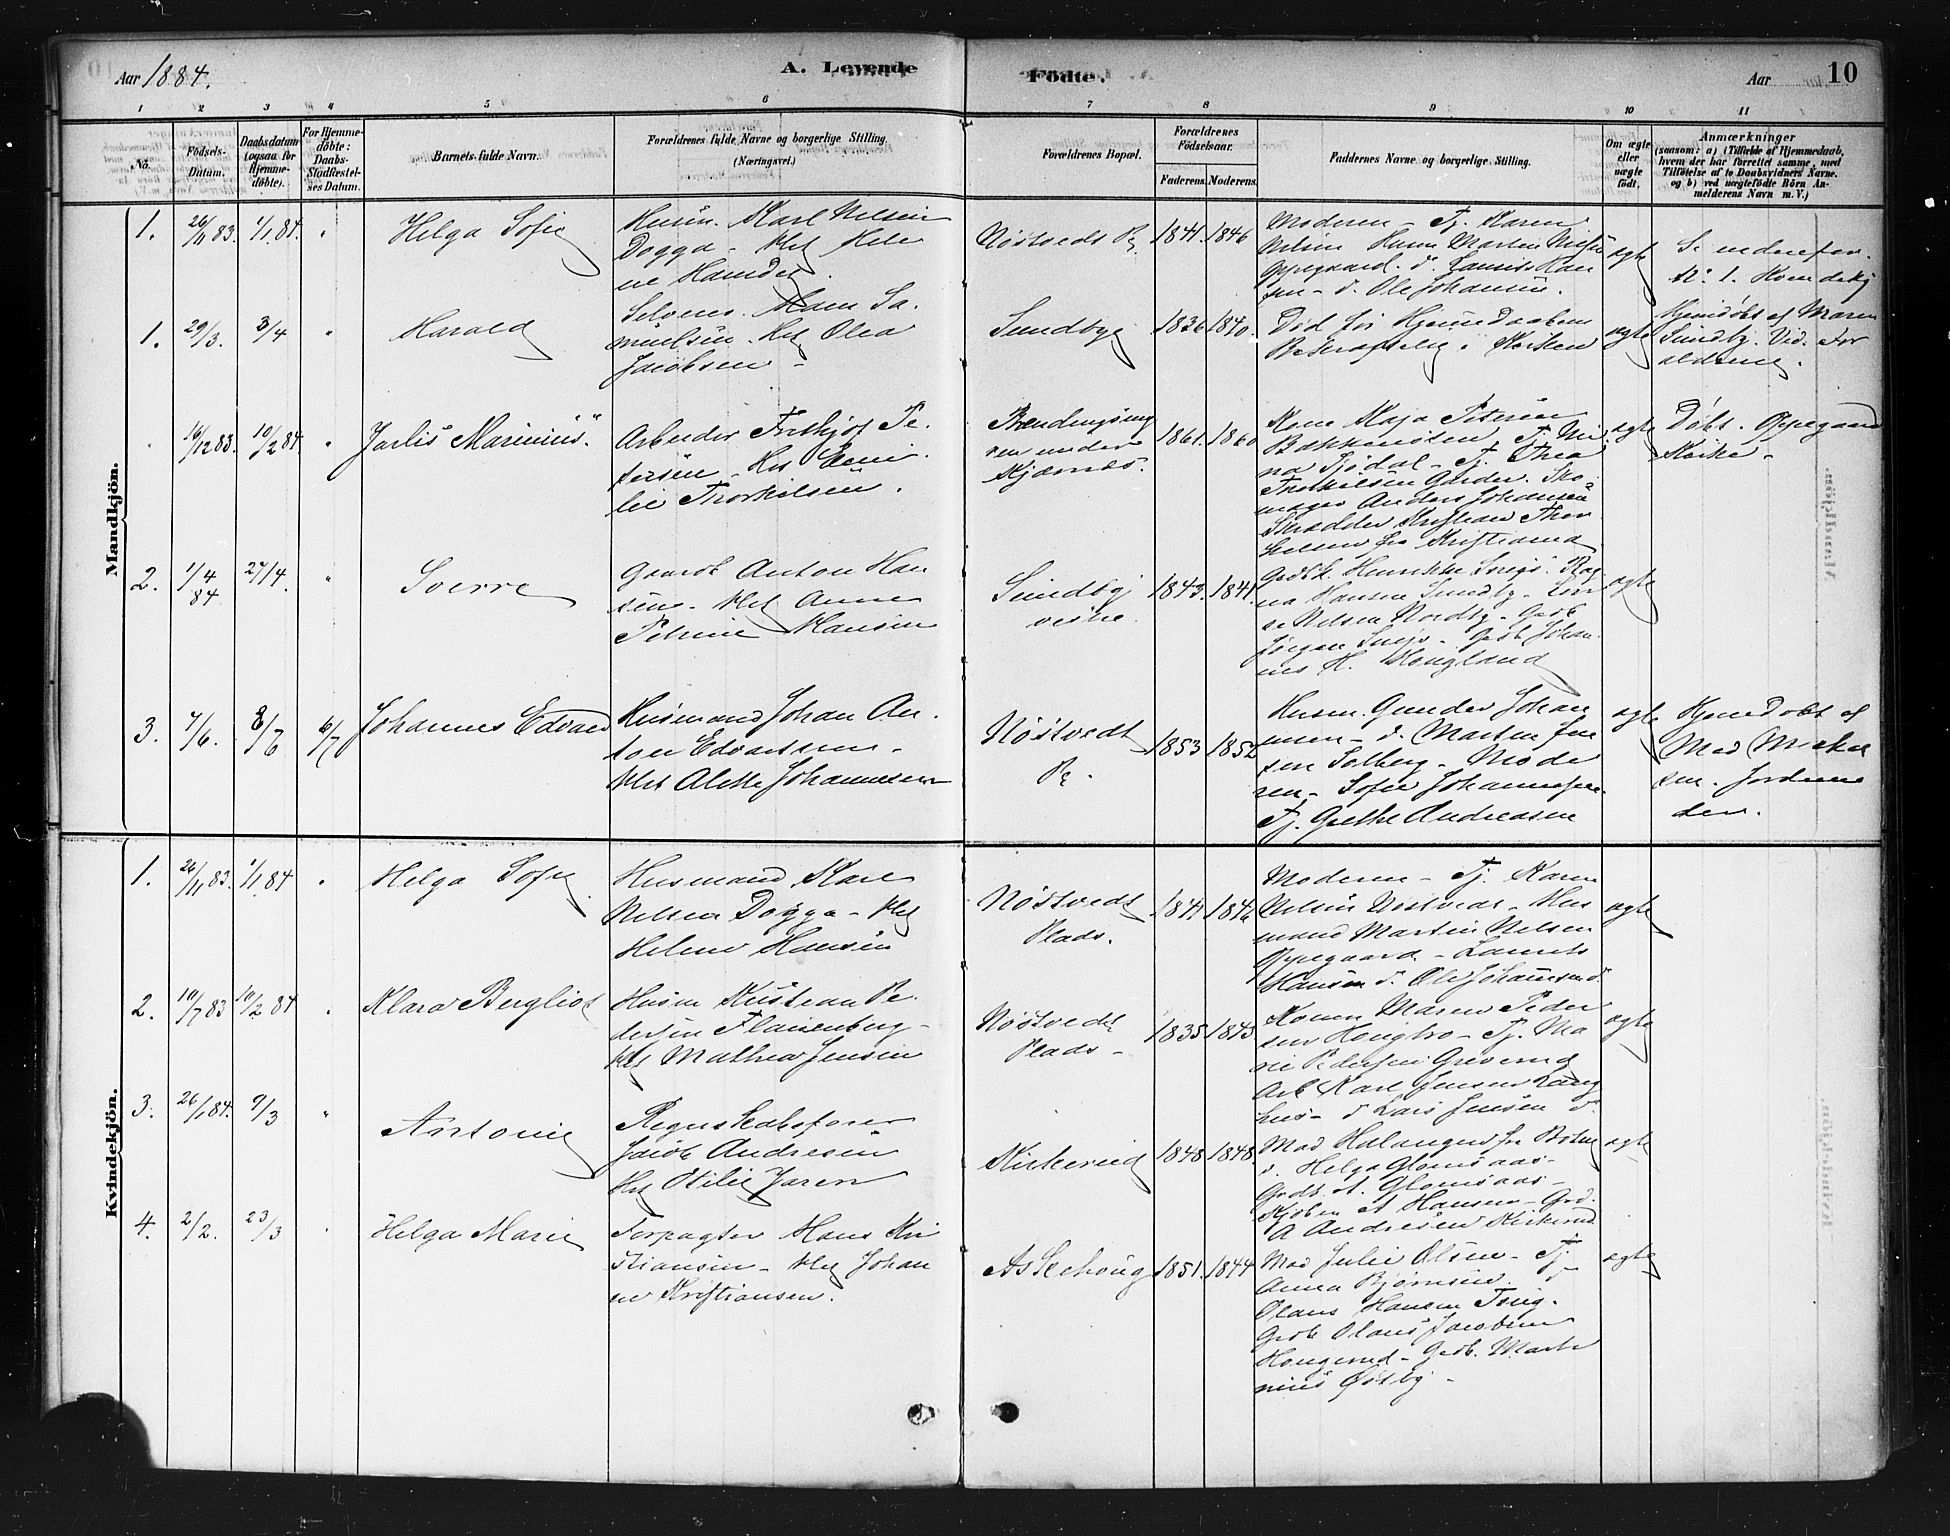 Aar 1884.
A. Levende
Födte.
Aar
10
1 2 3 4 5 6 7 8 9 10 11
No.
Födsels-
Datum.
Daabsdatum
(ogsaa for
Hjemme-
døbte).
For Hjemme-
døbte:
Daabs-
Stadfæstel-
ses Datum.
Barnets fulde Navn.
Forældrenes fulde Navne og borgerlige Stilling.
(Næringsvei.)
Forældrenes Bopæl.
Forældrenes
Födselsaar.
Faderens.
Moderens.
Faddernes Navne og borgerlige Stilling.
Om ægte
eller
uægte
født.
Anmærkninger
(saasom: a) i Tilfælde af Hjemmedaab,
hvem der har forrettet samme, med
Tilföielse af to Daabsvidners Navne.
og b) ved uægtefödte Börn An-
melderens Navn m. V.)
Mandkjön.
1. 26/11 83. 1/1 84. " Helga Sofie
Husm. Karl Nilsen
Dogga - Hst Hele
ne Hansdet.
Nöstvedt Pl
1841. 1846
Moderen - Tj. Karen
Nilsen Husm Marten Nilsen
Oppegaard. d. Laurits Han
sen - d. Ole Johansen.
ægte
Se nedenfor
Nr. 1. Kvindekj
1. 29/3. 3/4 " Harald
Selveier. Hans Sa-
muelsen. Hst Olea
Jacobsen -
Sundby
1836 1840.
Död før Hjemmedaabens
Bekræftelse i Kirken
ægte
Hjemdöbt af Maren
Sundby. Vid. For
ældrene.
" 16/12 83. 10/2 84. " Jarlis Marinius.
Arbeider Fritjof Pe-
tersen - Hst Ame
lie Thorkilsen.
under
Kjærnes.
1861. 1860
Kone Maja Petersen
Bakkemosten, Tj. Mi
na Sjödal - Tj. Thea
Thorkilsen Garder. Sko-
mager Anders Johansen
Skrædder Kristian Thor
kilsen fra Kristiania
ægte
Döbt. Oppegaard
Kirke -
2. 1/4 84 27/4. " Sverre
Gaardb Anton Han
sen - Hst Anne
Petrine Hansen
Sundby
vestre.
1843. 1841.
Gaardbk. Henrikke
Hansen Sundby -
Nilsen Nordby - Gaardb
Jörgen - Gaardb Johan
nes H. Hougland
ægte
3. 7/6. 8/6 6/7 Johannes Edvard
Husmand Johan An-
ton Edvartsen -
Hst Alette Johannesen
Nöstvedt
Pl.
1853 1852
Husm. Gunder Johan
nesen - d. Martin Jen
sen Solberg - Mode
ren - Sofie Johannesen
Tj. Grethe Andreasen
ægte
Hjemdöbt af
Mad Mickel
sen - Jordemo
der.
Kvindekjön.
1. 26/11 83. 1/1 84 " Helga Sofie
Husmand Karl
Nilsen Dogga - Hst
Helene Hansen
Nöstvedt
Plads.
1841 1846
Moderen - Tj. Karen
Nilsen Nöstvedt - Hus
mand Martin Nilsen
Oppegaard - Laurits
Hansen d. Ole Johansen d.
ægte
2. 10/7 83 10/2 84 " Klara Bergliot
Husm Kristian Pe-
dersen Flaisenberg -
Hst Mathea Jensen
Nöstvedt
Plads -
1835. 1843.
Konen Maren Peder
sen Hougbro - Tj. Ma
rie Pedersen Greverud
Arb Karl Jensen Lang
hus - d Lars Jensen d.
ægte
3. 26/1 84. 9/3 " Antonie
Regnskabsfører
Jacob Andresen
Hst Otilie Jaren
Kirkerud
1848 1848.
Mad Halangen fra
d. Helga Glomsaas -
Godb. A. Glomsaas -
Kjöbm A Hansen - Grd.
A Andresen Kirkerud
ægte
4. 2/2. 23/3 " Helga Marie
Forpagter Hans Kri
stiansen - Hst Johan
ne Kristiansen.
Askehoug
1851. 1844
Mad Julie Olsen - Tj.
Anna Bjørnsen. d
Olaus Hansen Trug.
Grdb Olaus Jacobsen
Hougerud - Grdb. Marti
nius Østby -
ægte